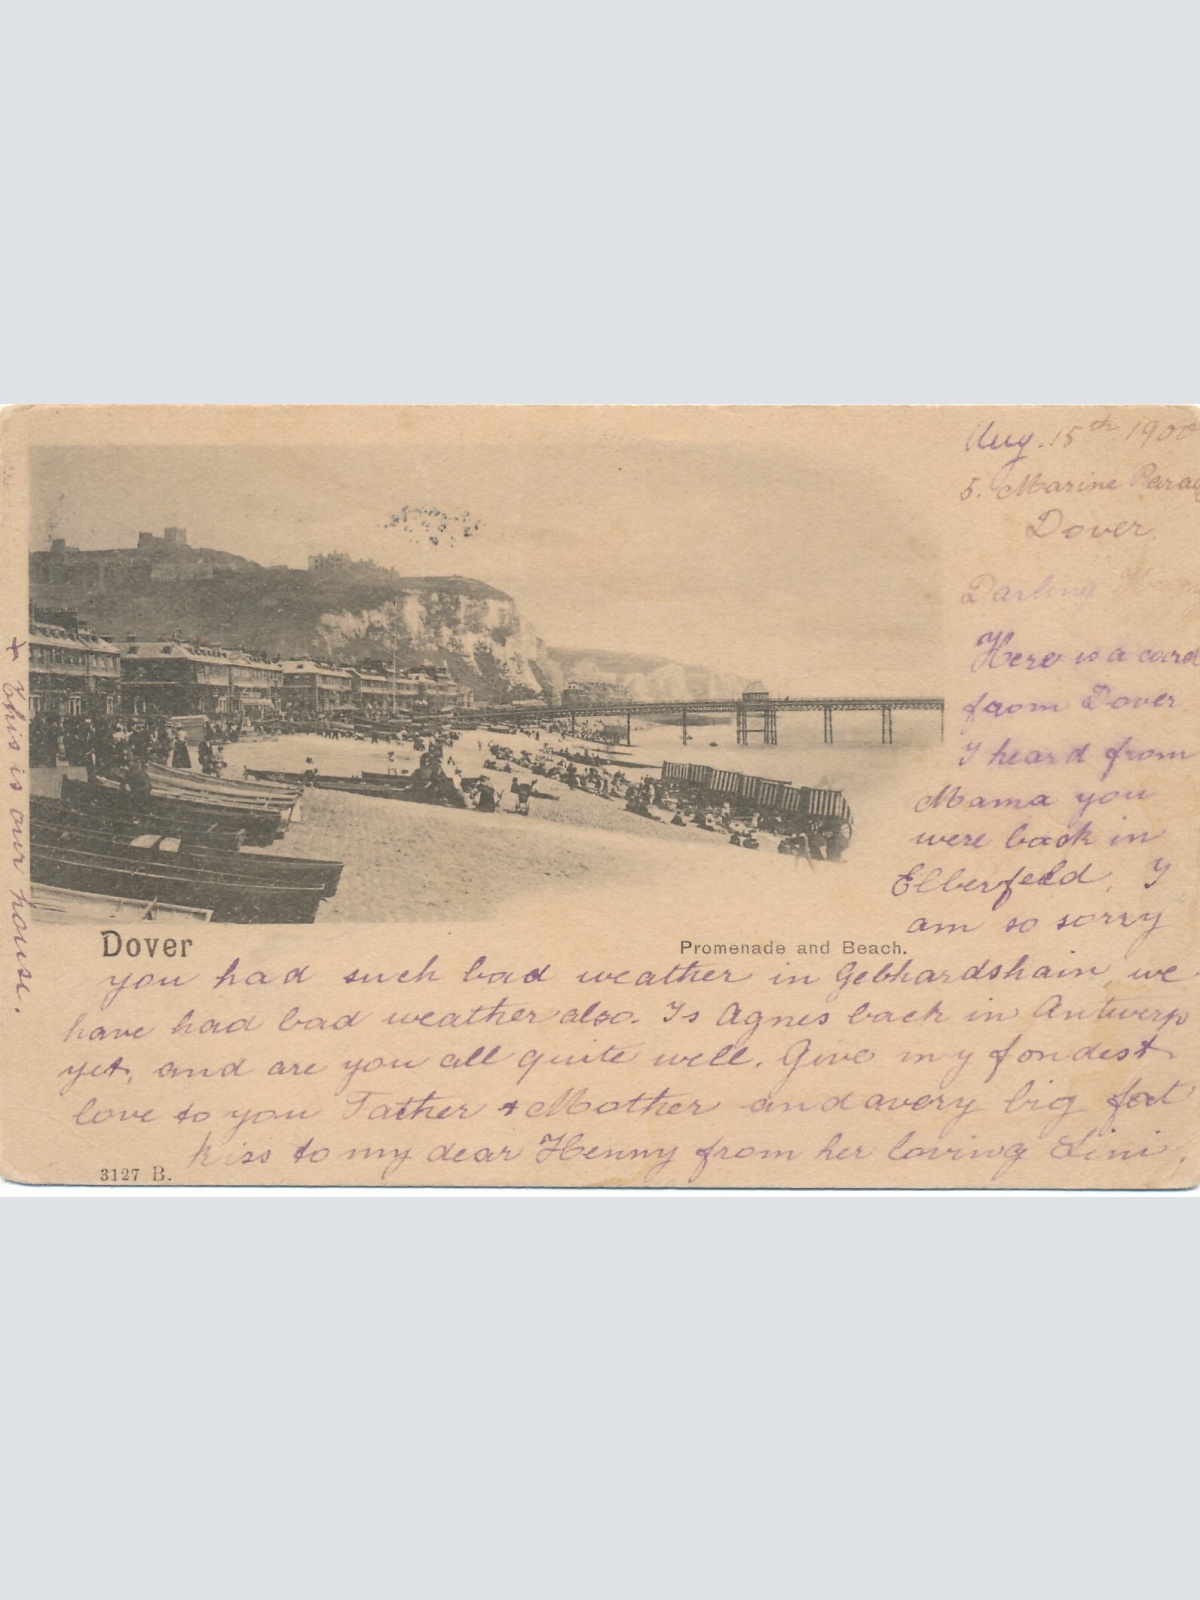 Aug. 15th 1900
5. Marine Parad
Dover
Darling
Here is a card
from Dover
I heard from
Mama you
were back in
Elberfeld, I
am so sorry
Dover
Promenade and Beach.
you had such bad weather in Gebhardshain, we
have had bad weather also. Is Agnes back in Antwerp
yet, and are you all quite well. Give my fondest
love to you Father + Mother and a very big fat
kiss to my dear Henny from her loving Lini.
3127 B.
+ This is our house.